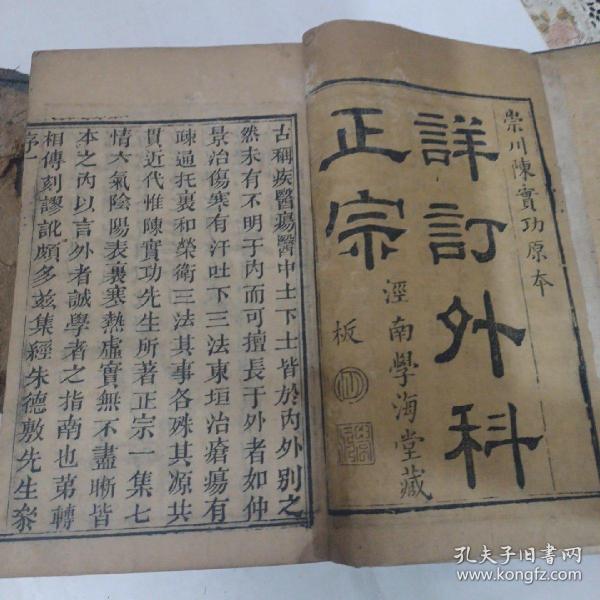 崇川陳實功原本
詳訂外科
正宗
涇南學海堂藏
板
古稱疾醫瘍醫中士下士皆於內外別之
然未有不明于內而可擅長于外者如仲
景治傷寒有汗吐下三法東垣治瘡瘍有
疎通托裏和榮衛三法其事各殊其源共
貫近代惟陳實功先生所著正宗一集七
情六氣陰陽表裏寒熱虛實無不盡晰皆
本之內以言外者誠學者之指南也第轉
相傳刻謬訛頗多茲集經朱德敷先生叅
序一
孔夫子旧书网
www.kongfz.com